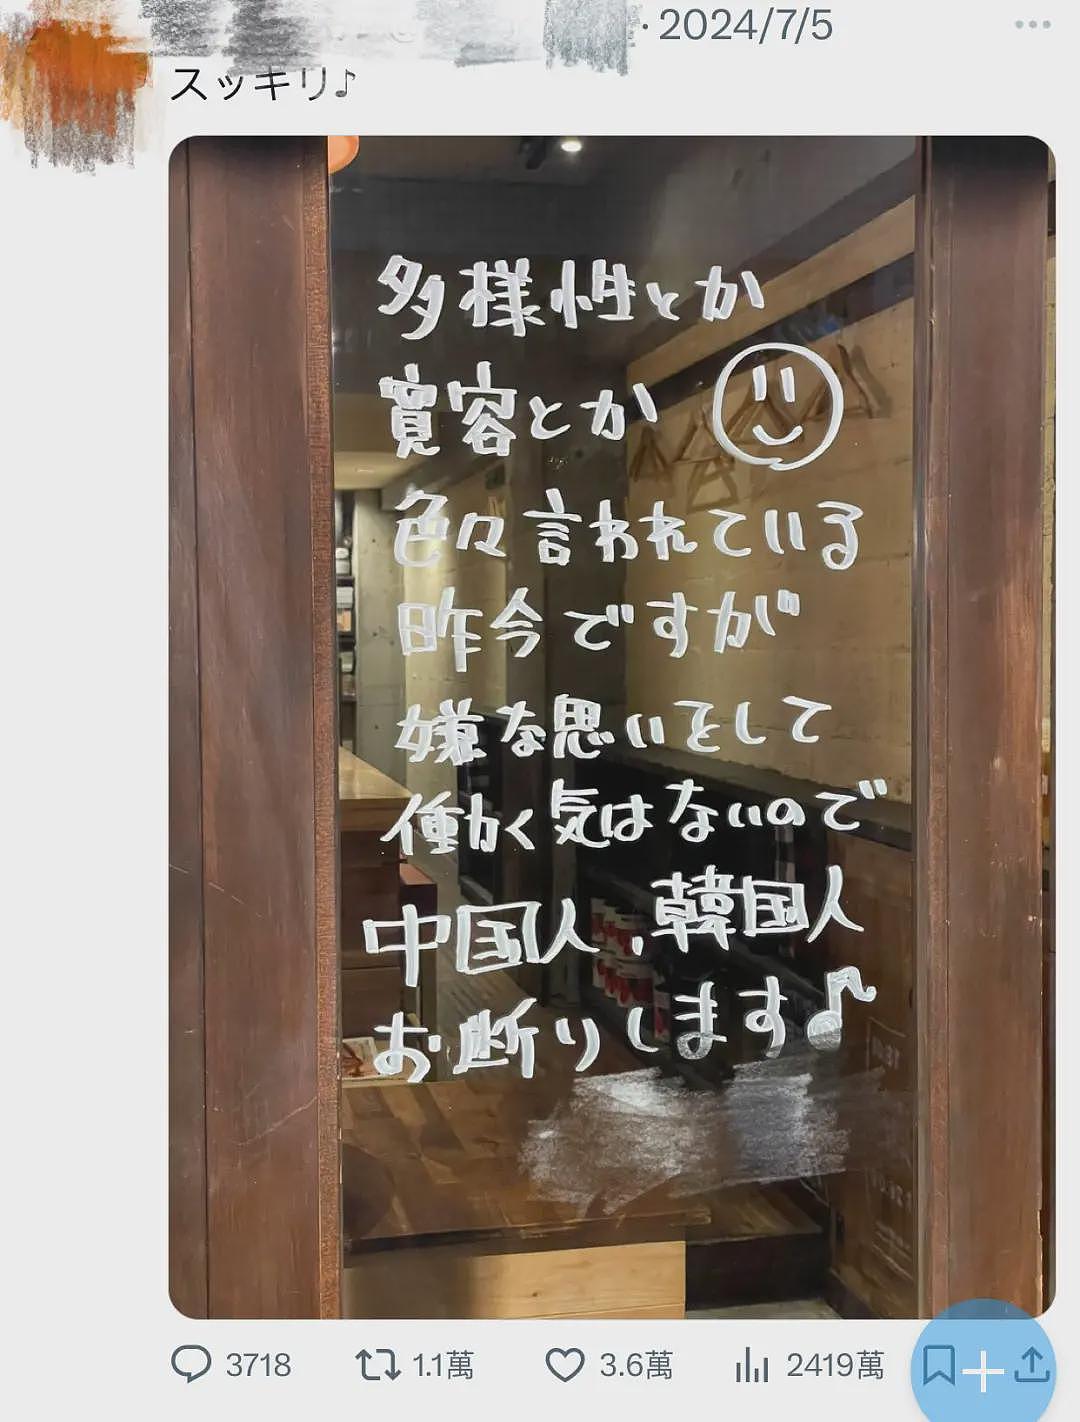 · 2024/7/5
スッキリ♪
多様性とか
寛容とか
色々言われている
昨今ですが
嫌な思いをして
働く気はないので
中国人、韓国人
お断りします♪
3718 1.1萬 3.6萬 2419萬